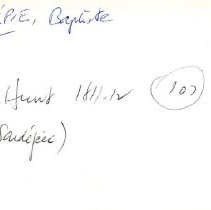 PIE, Baptiste
Hunt 1811-12 107
Dardépie)